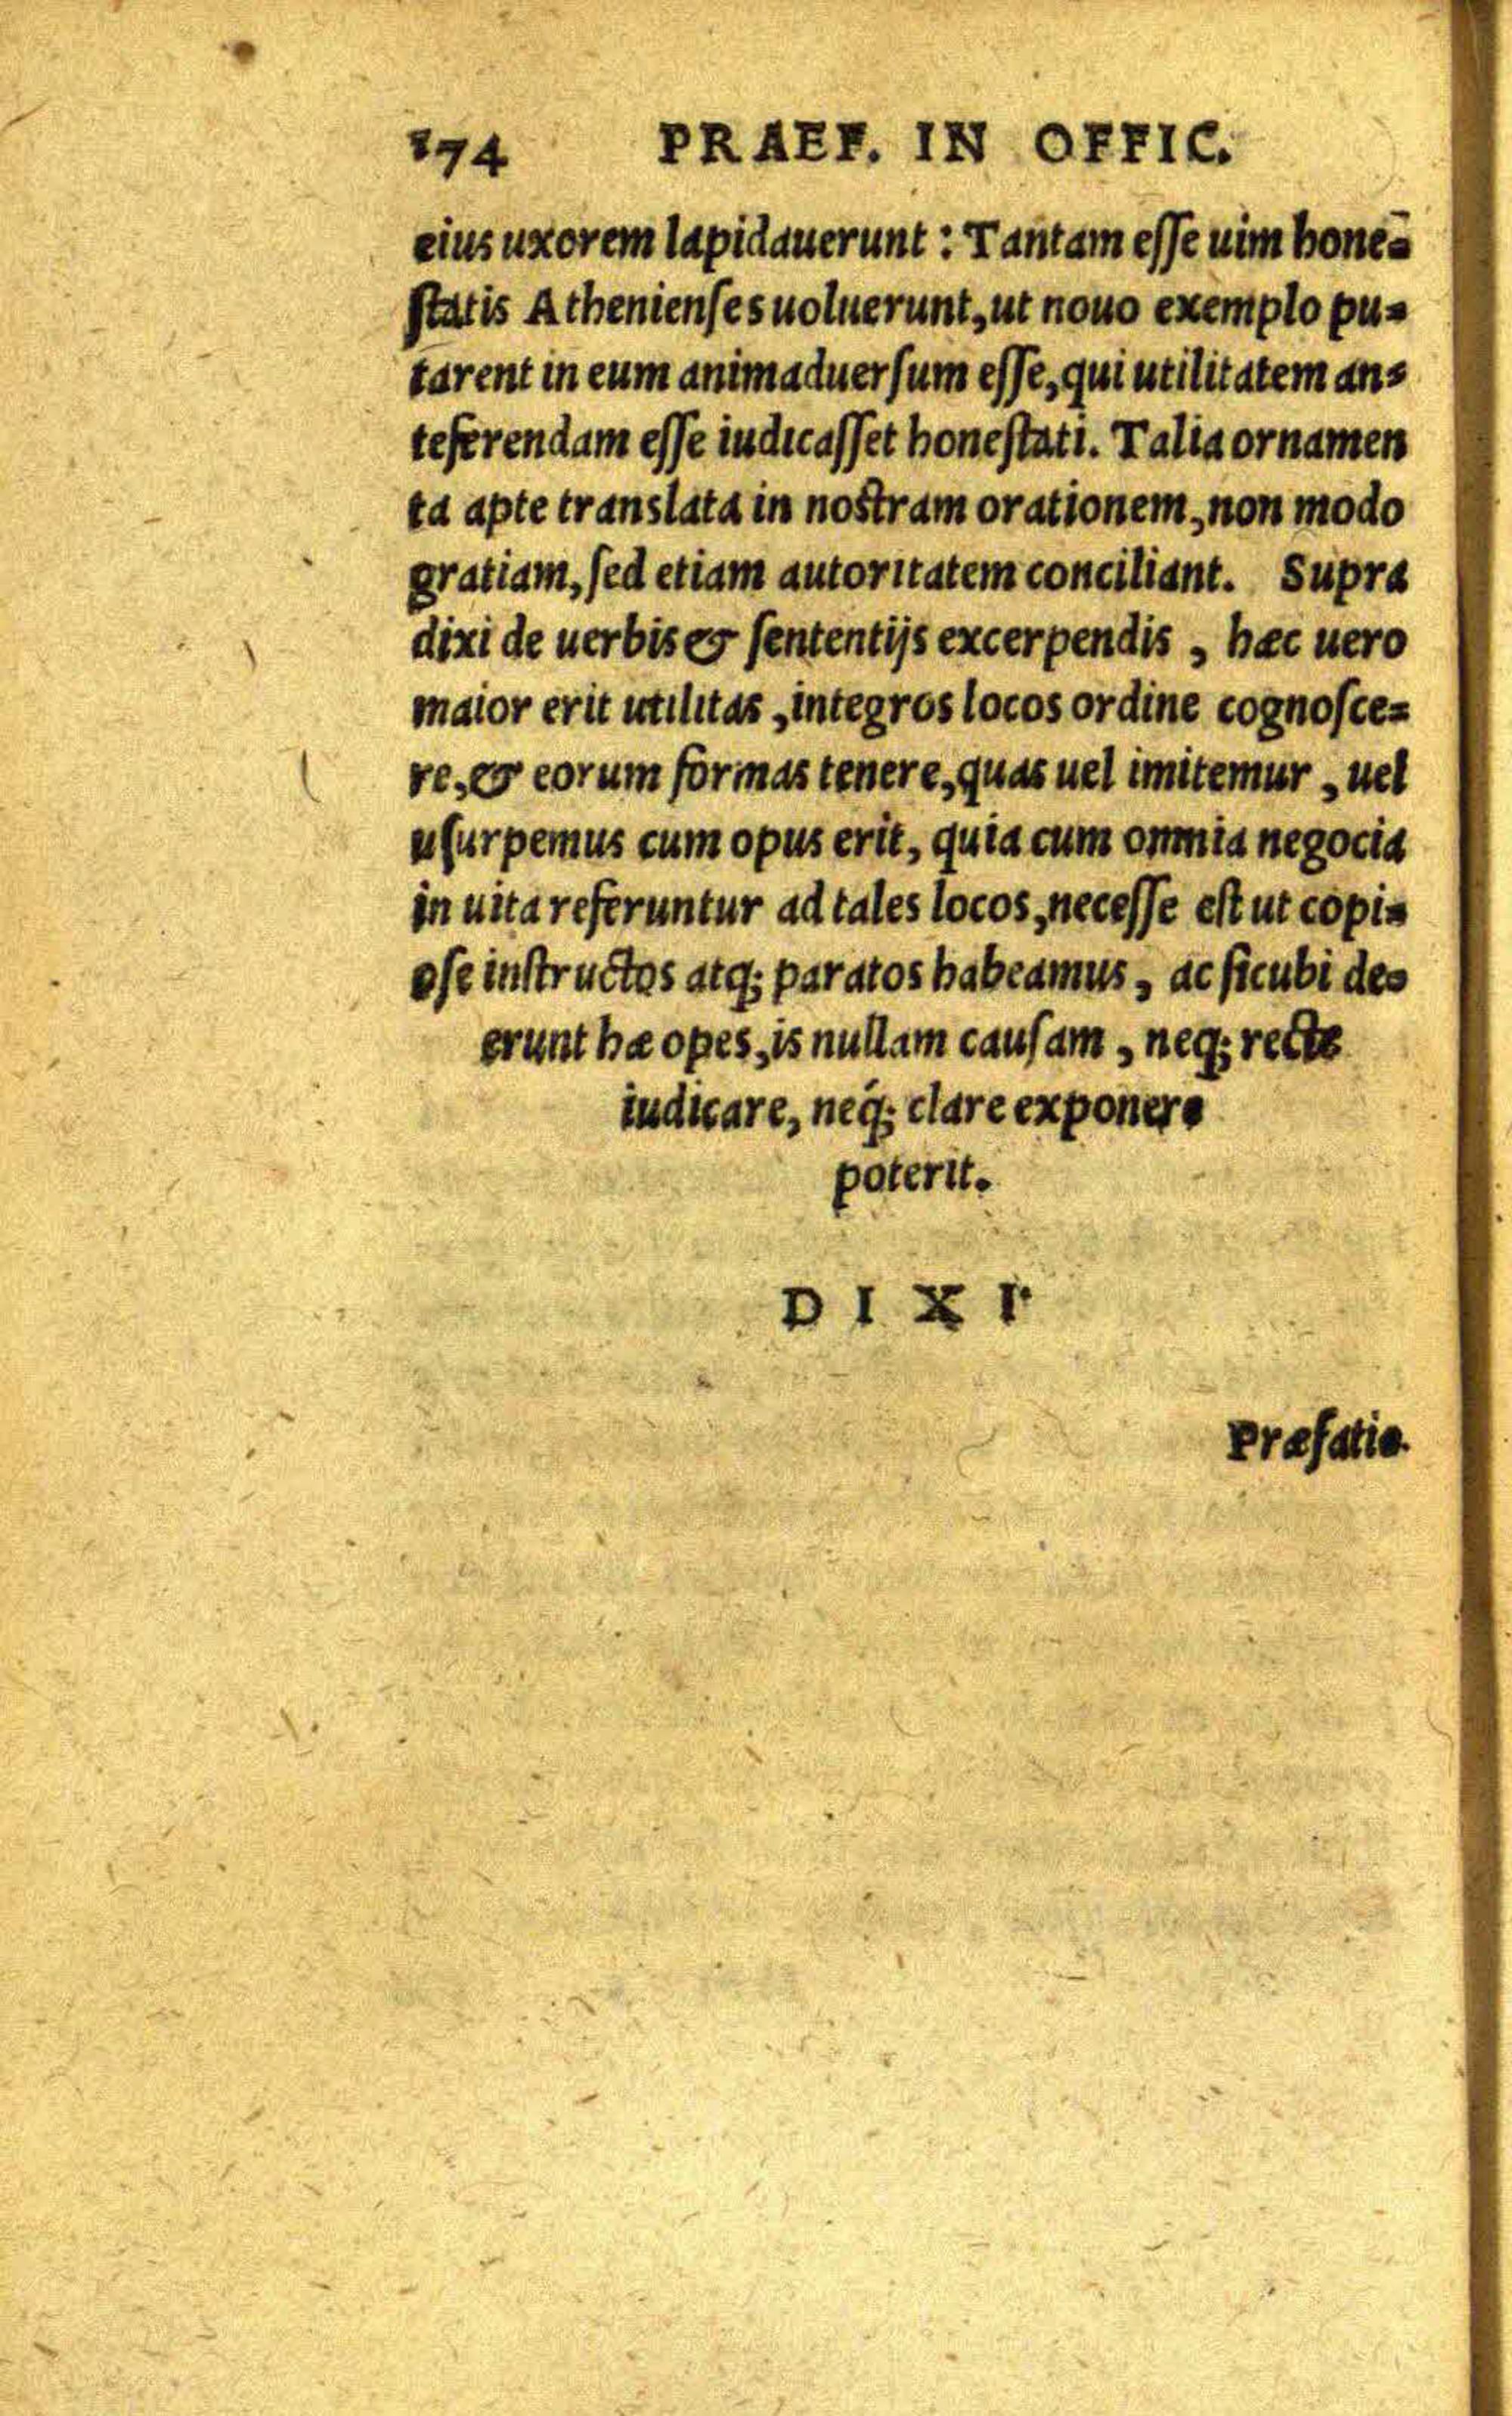 174 PRAEF. IN OFFIC.
eius uxorem lapidauerunt : Tantam eſſe uim hone⸗
ſtatis Athenienſes uoluerunt, ut nouo exemplo pu⸗
tarent in eum animaduerſum eſſe, qui utilitatem an⸗
teferendam eſſe iudicaſſet honeſtati. Talia ornamen
ta apte translata in noſtram orationem, non modo
gratiam, ſed etiam autoritatem conciliant. Supra
dixi de uerbis & ſententijs excerpendis , hæc uero
maior erit utilitas , integros locos ordine cognoſce⸗
re, & eorum formas tenere, quas uel imitemur , uel
uſurpemus cum opus erit, quia cum omnia negocia
in uita referuntur ad tales locos, neceſſe eſt ut copi⸗
oſe inſtructos atq; paratos habeamus , ac ſicubi de⸗
erunt hæ opes, is nullam cauſam , neq; recte
iudicare, neq́; clare exponere
poterit.
DIXI.
Præfatio.